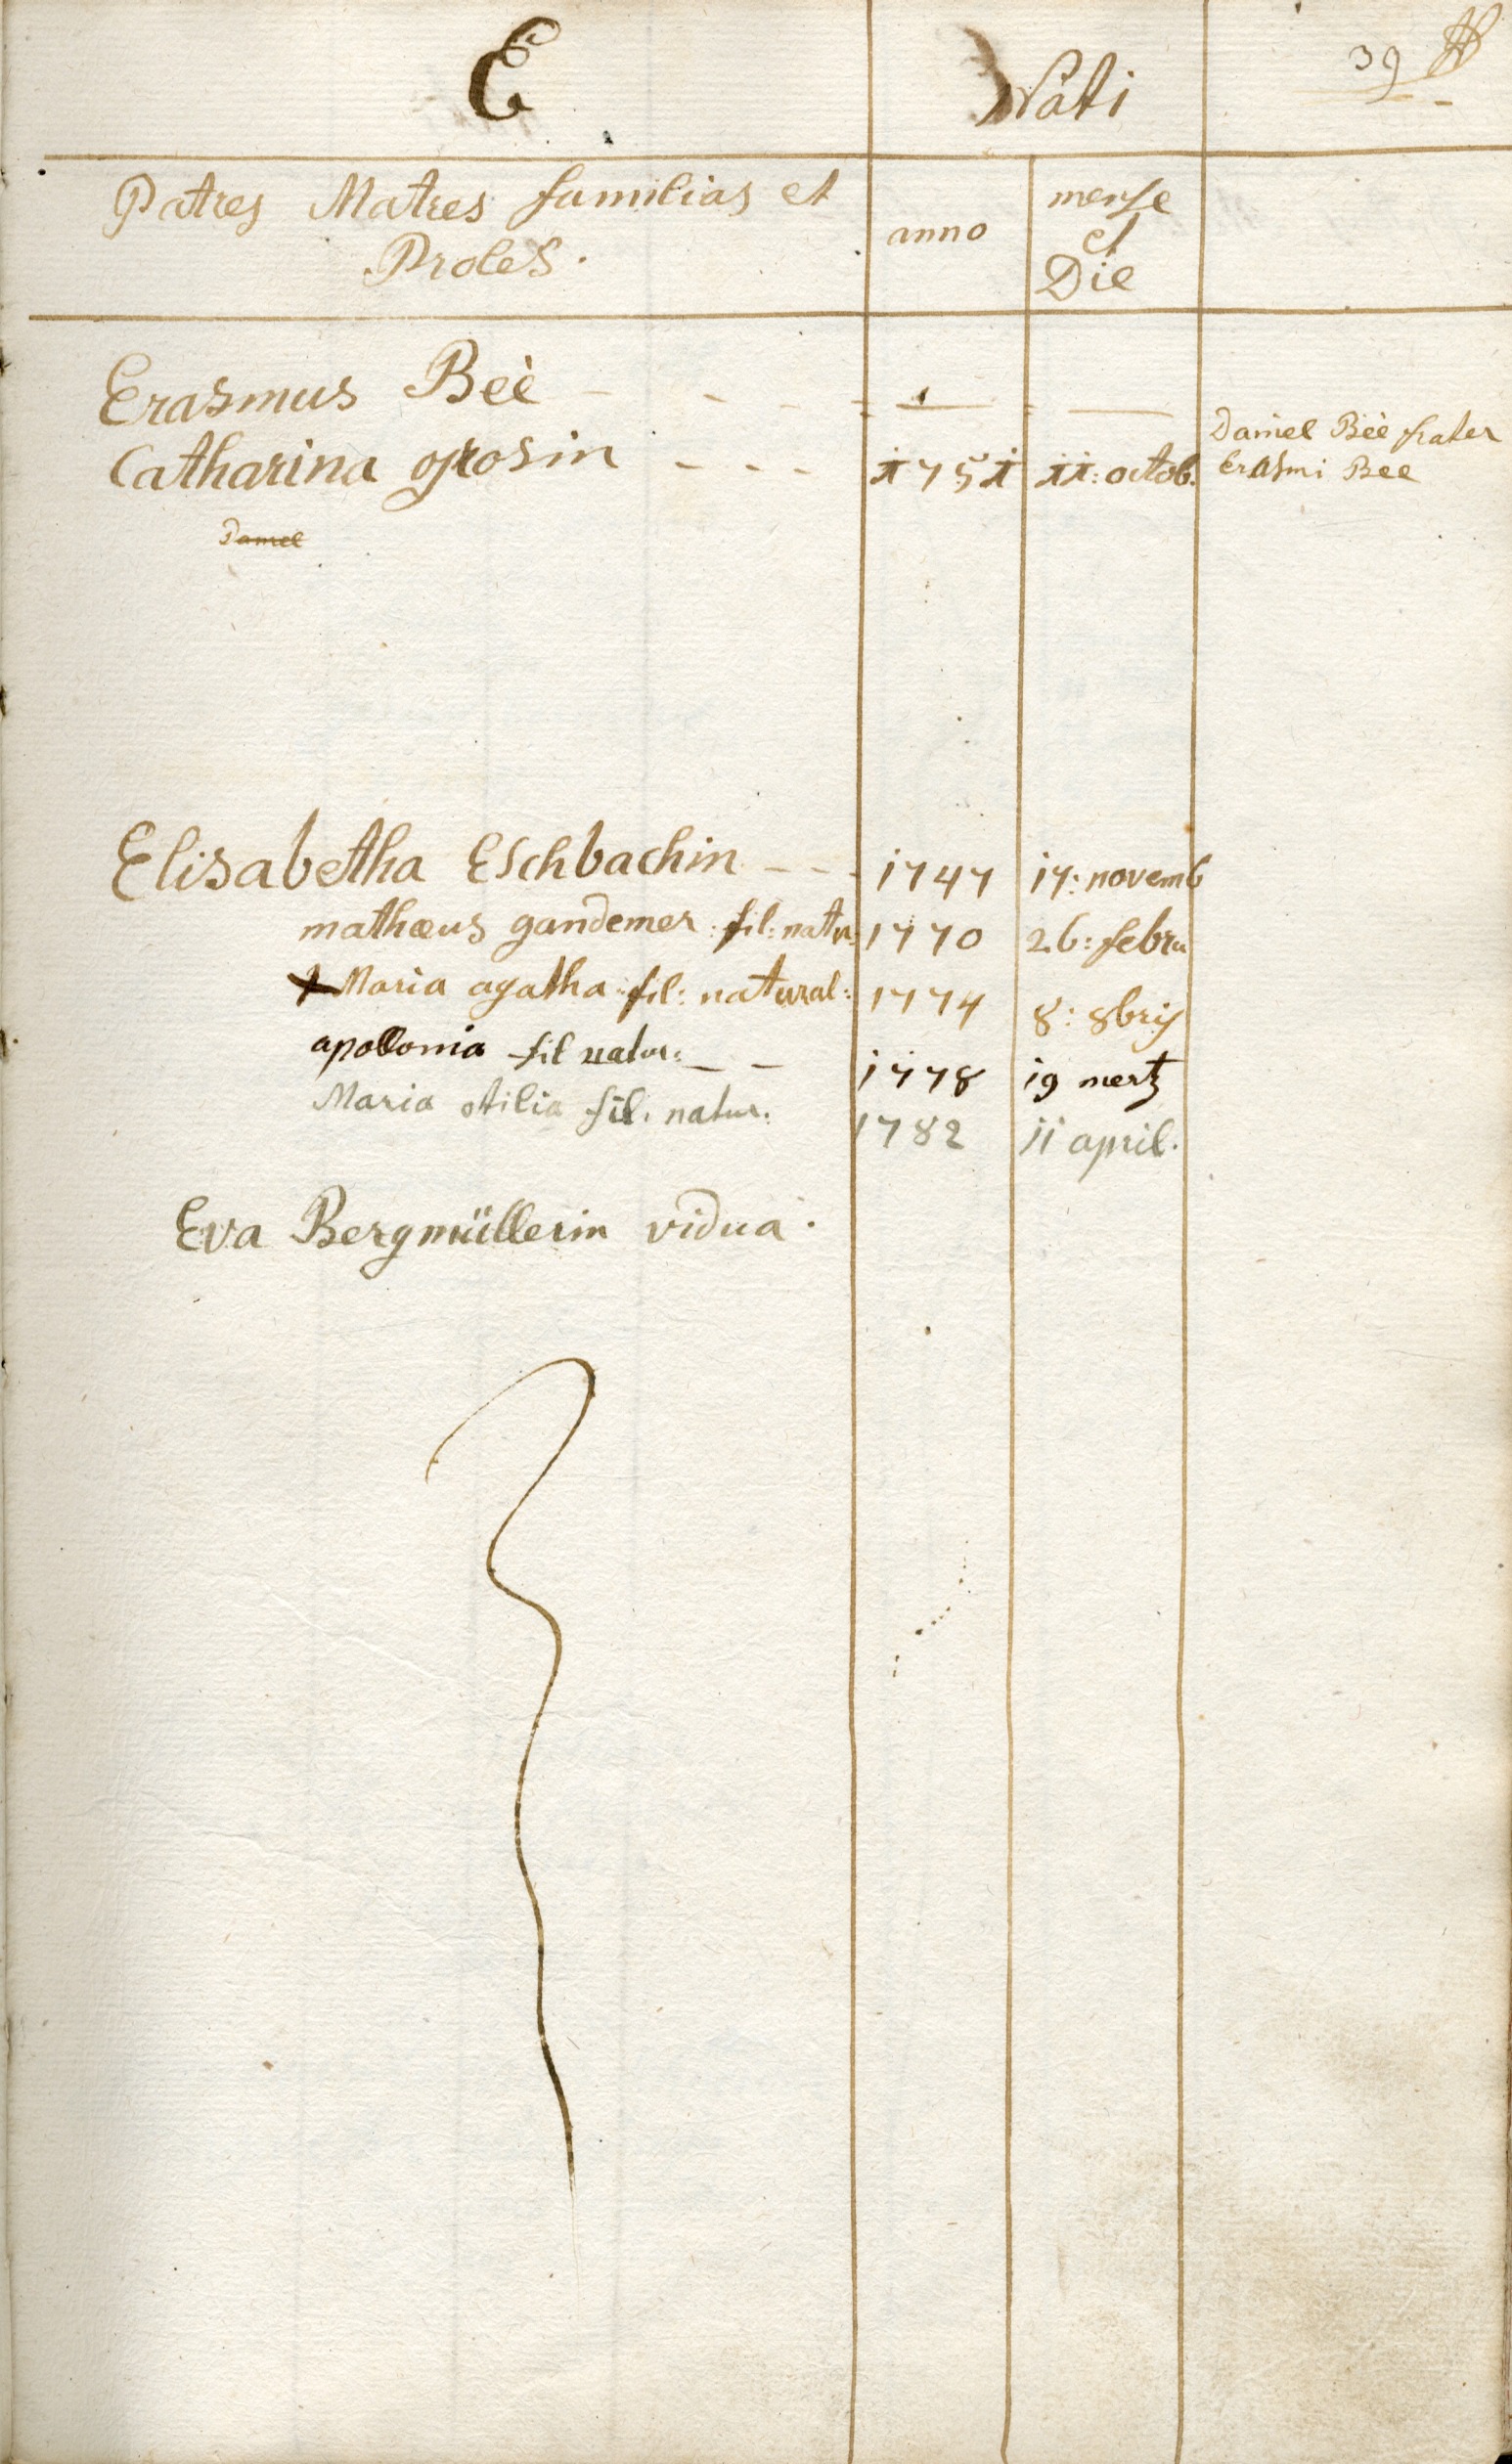 E Nati 39
Patres Matres familias et
Proles.
anno
mense
et
Die
Erasmus Beè - - - - — —
Catharina grosin - - - 1751 11: octob.
Daniel Beè frater
Erasmi Bee
Daniel
Elisabetha Eschbachin - - - 1747 17: novemb
mathæus gandemer: fil: natu: 1770 26: febru
† Maria agatha: fil: natural: 1774 8: 8bris
apollonia fil natur: - - 1778 19 mertz
Maria otilia fil. natur. 1782 11 april.
Eva Bergmüllerin vidua.